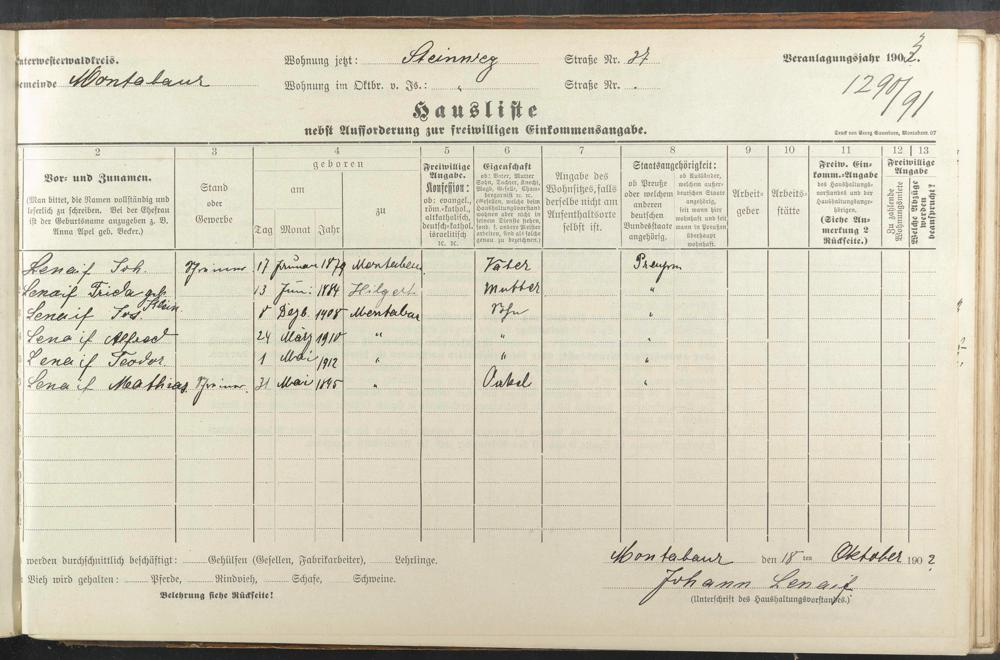 nterwesterwaldkreis. Wohnung jetzt: Steinweg Straße Nr. 27 Veranlagungsjahr 190
emeinde Montabaur Wohnung im Oktbr. v. Js.: " Straße Nr.
1290/91
Hausliste
nebst Aufforderung zur freiwilligen Einkommensangabe.
Druck von Georg Sauerborn, Montabaur. 07
2 3 4 5 6 7 8 9 10 11 12 13
Vor- und Zunamen.
(Man bittet, die Namen vollständig und
leserlich zu schreiben. Bei der Ehefrau
ist der Geburtsname anzugeben z. B.
Anna Apel geb. Becker.)
Stand
oder
Gewerbe
geboren
am zu
Tag Monat Jahr
Freiwillige
Angabe.
Konfession:
ob: evangel.,
röm.-kathol.,
altkatholisch,
deutsch-kathol.
israelitisch
ꝛc. ꝛc.
Eigenschaft
ob: Vater, Mutter
Sohn, Tochter, Knecht,
Magd, Geselle, Cham-
bergarnist ꝛc. ꝛc.
(Gesellen, welche beim
Haushaltungsvorstand
wohnen aber nicht in
seinem Dienste stehen,
sind als solche
genau zu bezeichnen.)
Angabe des
Wohnsitzes, falls
derselbe nicht am
Aufenthaltsorte
selbst ist.
Staatsangehörigkeit:
ob Preuße
oder welchem
anderen
deutschen
Bundesstaate
angehörig.
ob Ausländer,
welchem außer-
deutschen Staate
angehörig,
seit wann hier
wohnhaft und seit
wann in Preußen
überhaupt
wohnhaft.
Arbeit-
geber
Arbeits-
stätte
Freiw. Ein-
komm.-Angabe
des Haushaltungs-
vorstandes und der
Haushaltungsange-
hörigen.
(Siehe An-
merkung 2
Rückseite.)
Freiwillige
Angabe
Zu zahlende
Wohnungsmiete
Welche Abzüge
werden
beansprucht?
Lenaif Joh. Schreiner 17 Januar 1879 Montabaur Vater Preußen
Lenaif Frida geb. Klein 13 Juni 1884 Hilgert Mutter "
Lenaif Jos. 8 Dezb. 1908 Montabaur Sohn "
Lenaif Alfred 24 März 1910 " " "
Lenaif Teodor. 1 Mai 1912 " " "
Lenaif Mathias Schreiner 31 Mai 1895 " Onkel "
werden durchschnittlich beschäftigt: Gehülfen (Gesellen, Fabrikarbeiter), Lehrlinge.
Vieh wird gehalten: Pferde, Rindvieh, Schafe, Schweine.
Belehrung siehe Rückseite!
Montabaur den 18ten Oktober 1902
Johann Lenaif
(Unterschrift des Haushaltungsvorstandes.)